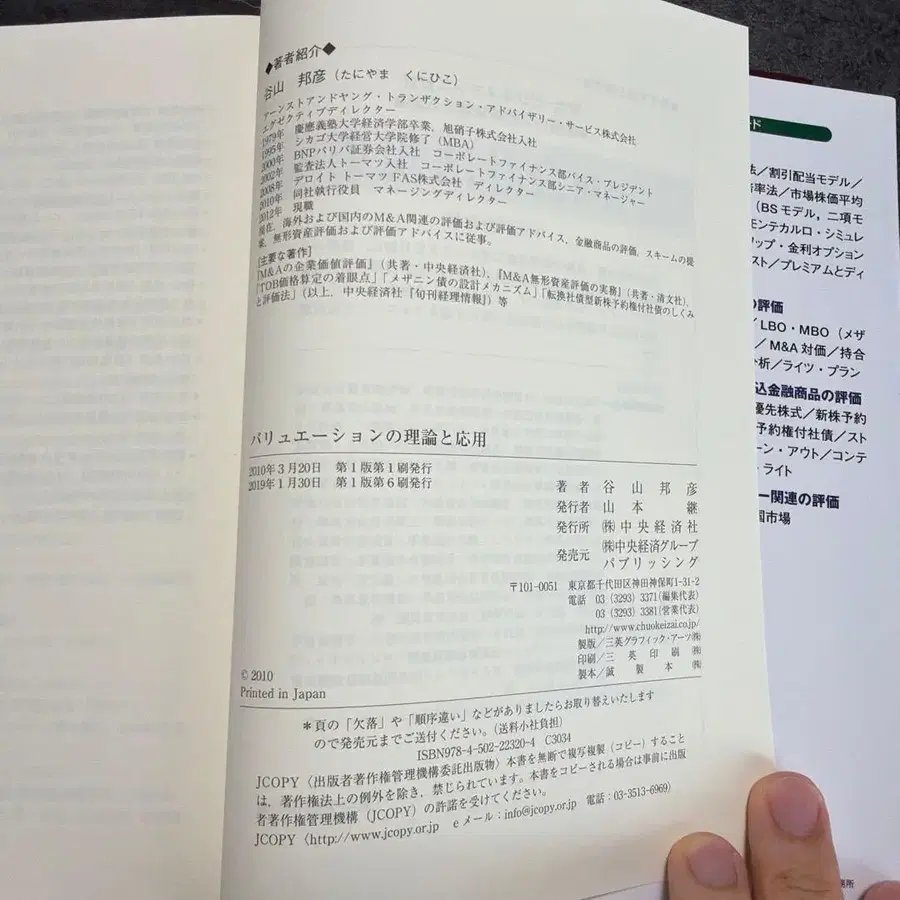 ◆著者紹介◆
谷山 邦彦(たにやま くにひこ)
アーンストアンドヤング・トランザクション・アドバイザリー・サービス株式会社
エグゼクティブディレクター
1979年 慶應義塾大学経済学部卒業,旭硝子株式会社入社
1995年 シカゴ大学経営大学院修了(MBA)
2000年 BNPパリバ証券会社入社 コーポレートファイナンス部バイス・プレジデント
2002年 監査法人トーマツ入社 コーポレートファイナンス部シニア・マネージャー
2008年 デロイト トーマツFAS株式会社 ディレクター
2010年 同社執行役員 マネージングディレクター
2012年 現職
現在,海外および国内のM&A関連の評価および評価アドバイス,金融商品の評価,スキームの提
案,無形資産評価および評価アドバイスに従事。
[主要な著作]
『M&Aの企業価値評価』(共著・中央経済社),『M&A無形資産評価の実務』(共著・清文社),
「TOB価格算定の着眼点」「メザニン債の設計メカニズム」「転換社債型新株予約権付社債のしくみ
と評価法」(以上,中央経済社『旬刊経理情報』)等
バリュエーションの理論と応用
2010年3月20日 第1版第1刷発行
2019年1月30日 第1版第6刷発行
著者 谷山邦彦
発行者 山本継
発行所 ㈱中央経済社
発売元 ㈱中央経済グループ
パブリッシング
〒101-0051 東京都千代田区神田神保町1-31-2
電話 03(3293)3371(編集代表)
03(3293)3381(営業代表)
http://www.chuokeizai.co.jp/
製版/三英グラフィック・アーツ㈱
印刷/三英印刷㈱
製本/誠製本㈱
© 2010
Printed in Japan
*頁の「欠落」や「順序違い」などがありましたらお取り替えいたします
ので発売元までご送付ください。(送料小社負担)
ISBN978-4-502-22320-4 C3034
JCOPY〈出版者著作権管理機構委託出版物〉本書を無断で複写複製(コピー)すること
は,著作権法上の例外を除き,禁じられています。本書をコピーされる場合は事前に出版
者著作権管理機構(JCOPY)の許諾を受けてください。
JCOPY〈http://www.jcopy.or.jp eメール:info@jcopy.or.jp 電話:03-3513-6969〉
ド
法/割引配当モデル/
率法/市場株価平均
(BSモデル,二項モ
モンテカルロ・シミュレ
ップ・金利オプション
スト/プレミアムとディ
の評価
LBO・MBO(メザ
/M&A対価/持合
析/ライツ・プラン
込金融商品の評価
優先株式/新株予約
予約権付社債/スト
ーン・アウト/コンテ
ライト
ー関連の評価
国市場
務所